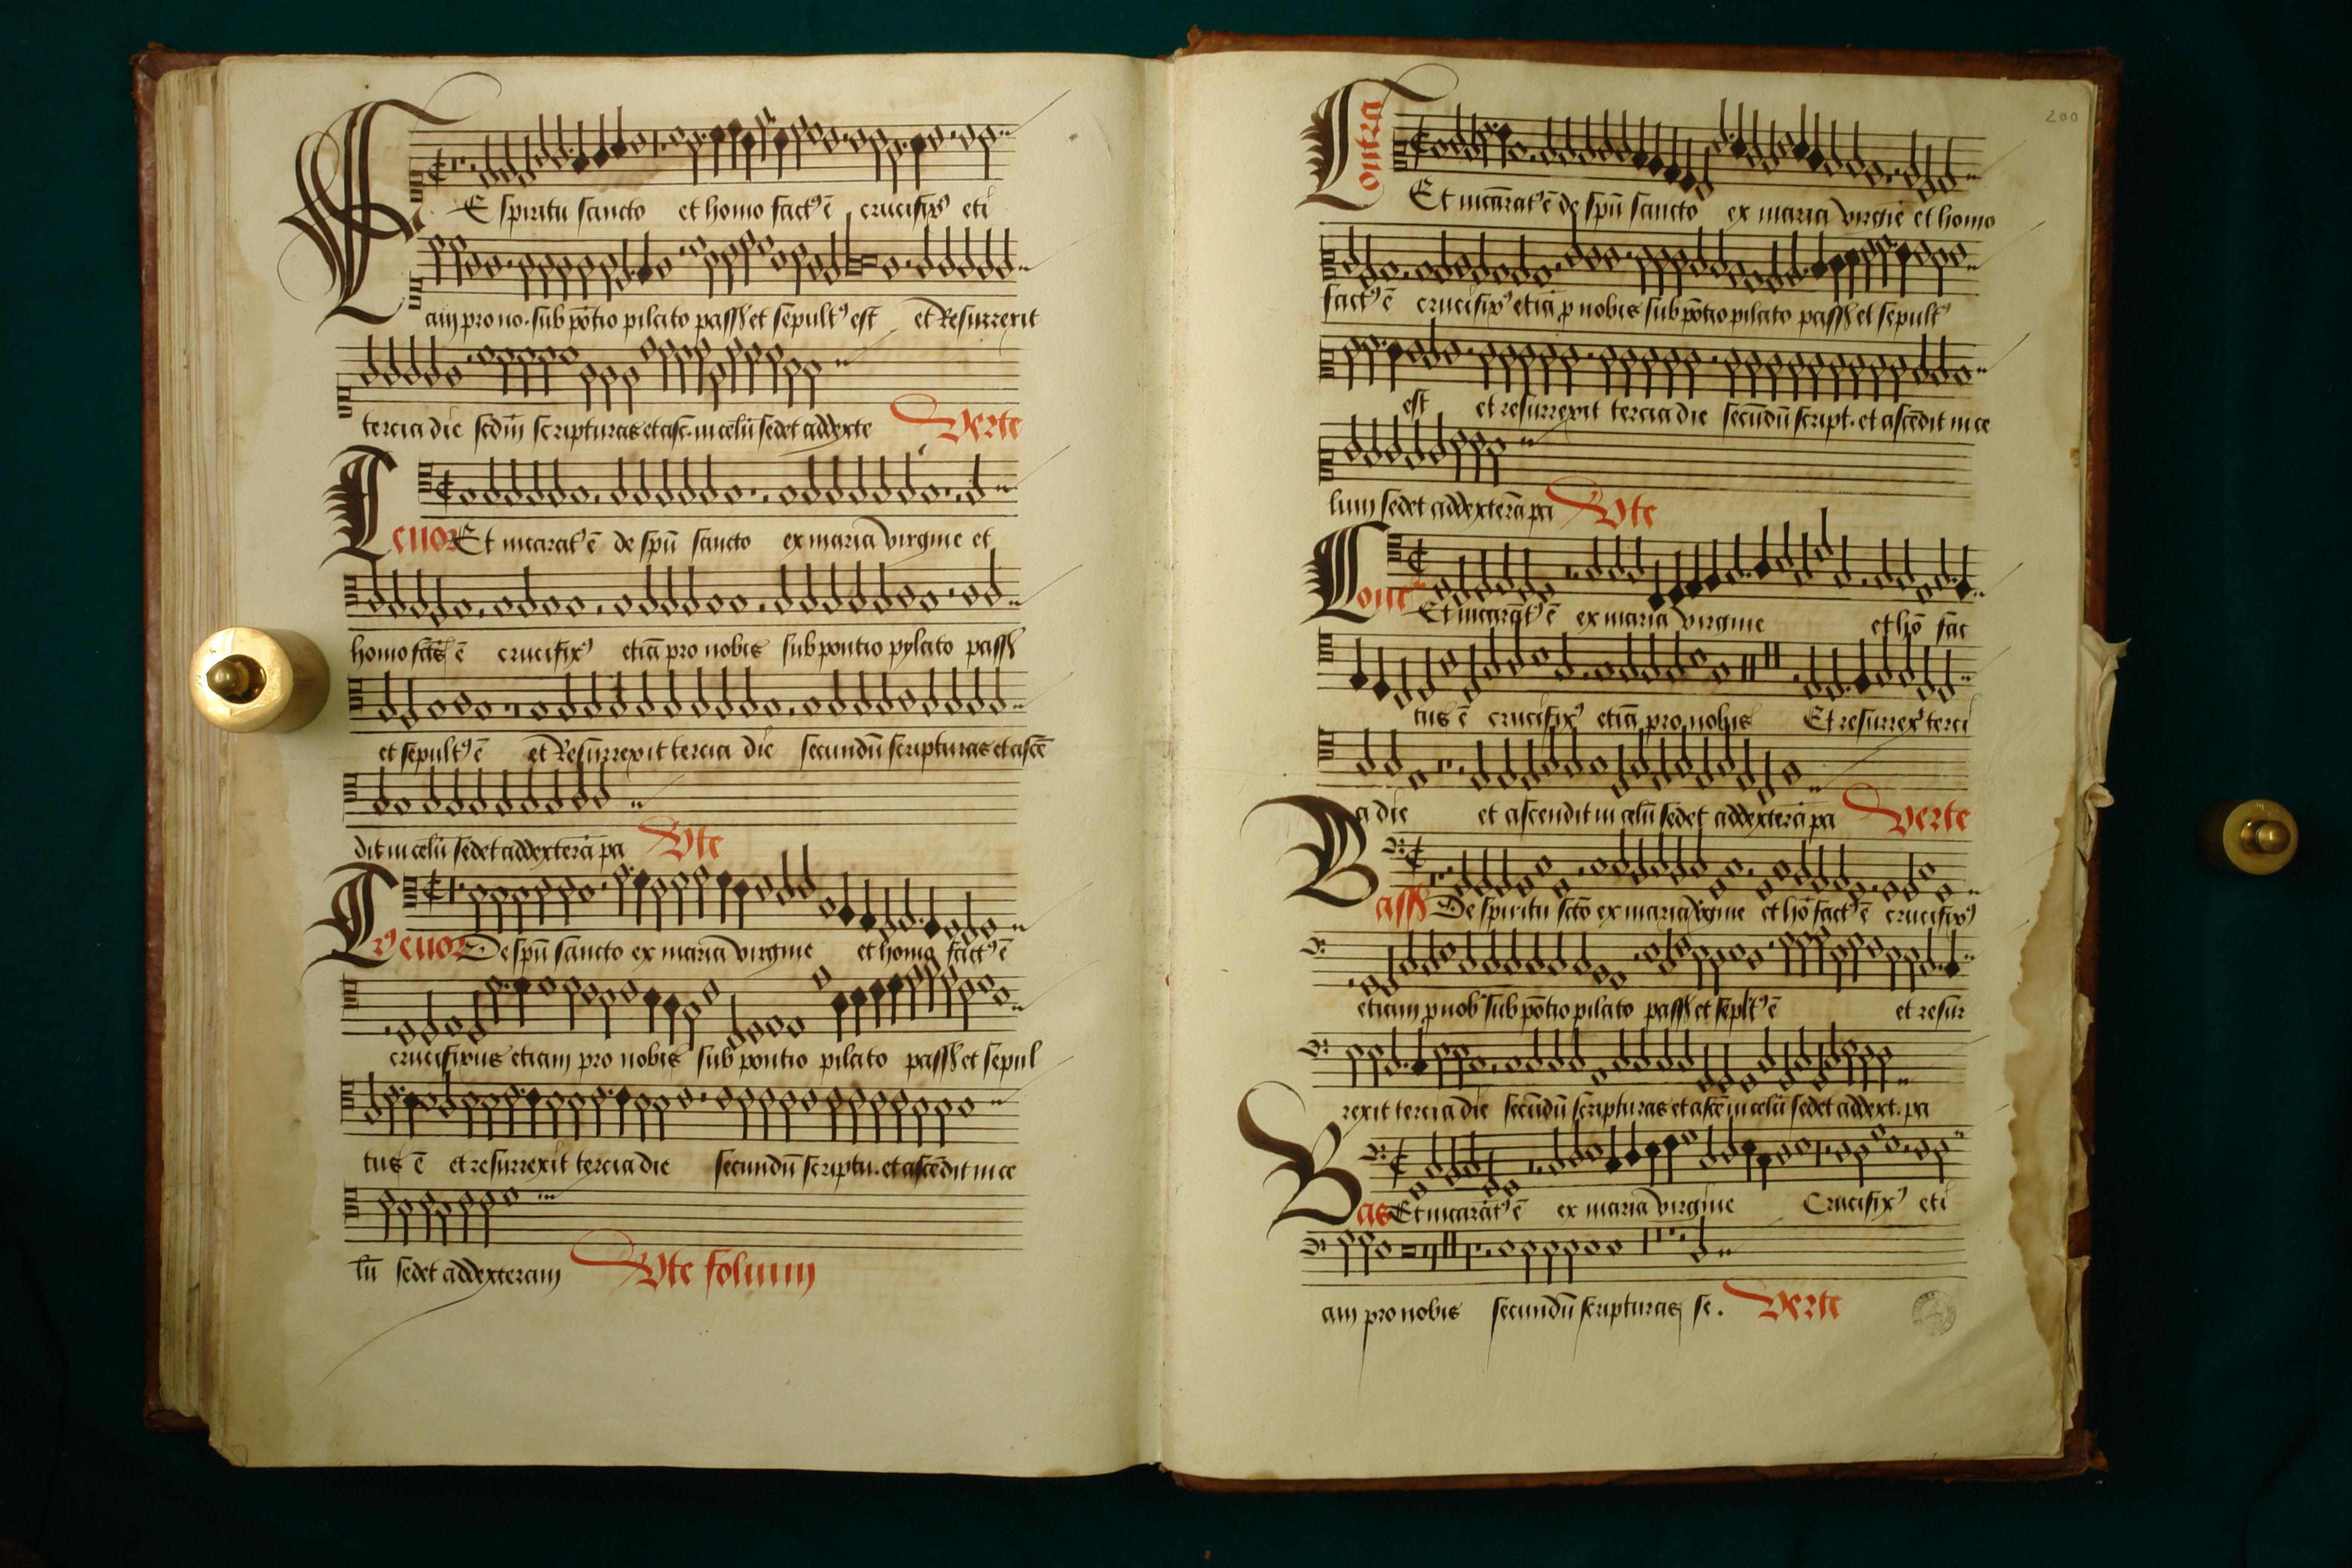 E spiritu sancto et homo fact⁹ ē crucifix⁹ eti
am pro no. sub pōtio pilato pass⁹ et sepult⁹ est et Resurrexit
tercia die scdm̄ scripturas et asc. in celū sedet ad dexte Verte
Tenor Et incarat⁹ ē de spū sancto ex maria virgine et
homo fact⁹ ē crucifix⁹ etiā pro nobis sub pontio pylato pass⁹
et sepult⁹ ē et Resurrexit tercia die secundū scripturas et ascē
dit in celū sedet ad dexterā pa Vte
Tenor De spū sancto ex maria virgine et homo fact⁹ ē
crucifixus etiam pro nobis sub pontio pilato pass⁹ et sepul
tus ē et resurrexit tercia die secundū scriptu. et ascēdit in ce
lū sedet ad dexteram Vte folium
200
Contra Et incārat⁹ ē de spū sancto ex maria virgīe et homo
fact⁹ ē crucifix⁹ etiā p nobis sub pōtio pilato pass⁹ et sepult⁹
est et resurrexit tercia die secūdū script. et ascēdit in ce
lum sedet ad dexterā pa Vte
Cont Et incarāt⁹ ē ex maria virgine et hō fac
tus ē crucifix⁹ etiā pro nobis Et resurrex̄ terci
a die et ascendit in celū sedet ad dexterā pa Verte
Bass⁹ De spiritu scto ex maria vgine et hō fact⁹ ē crucifix⁹
etiam p nob sub pōtio pilato pass⁹ et seplt⁹ ē et resur
rexit tercia die secūdū scripturas et ascē in celū sedet ad dext. pa
Bas Et incarāt⁹ ē ex maria virgine Crucifix⁹ eti
am pro nobis secundū scripturas se. Verte